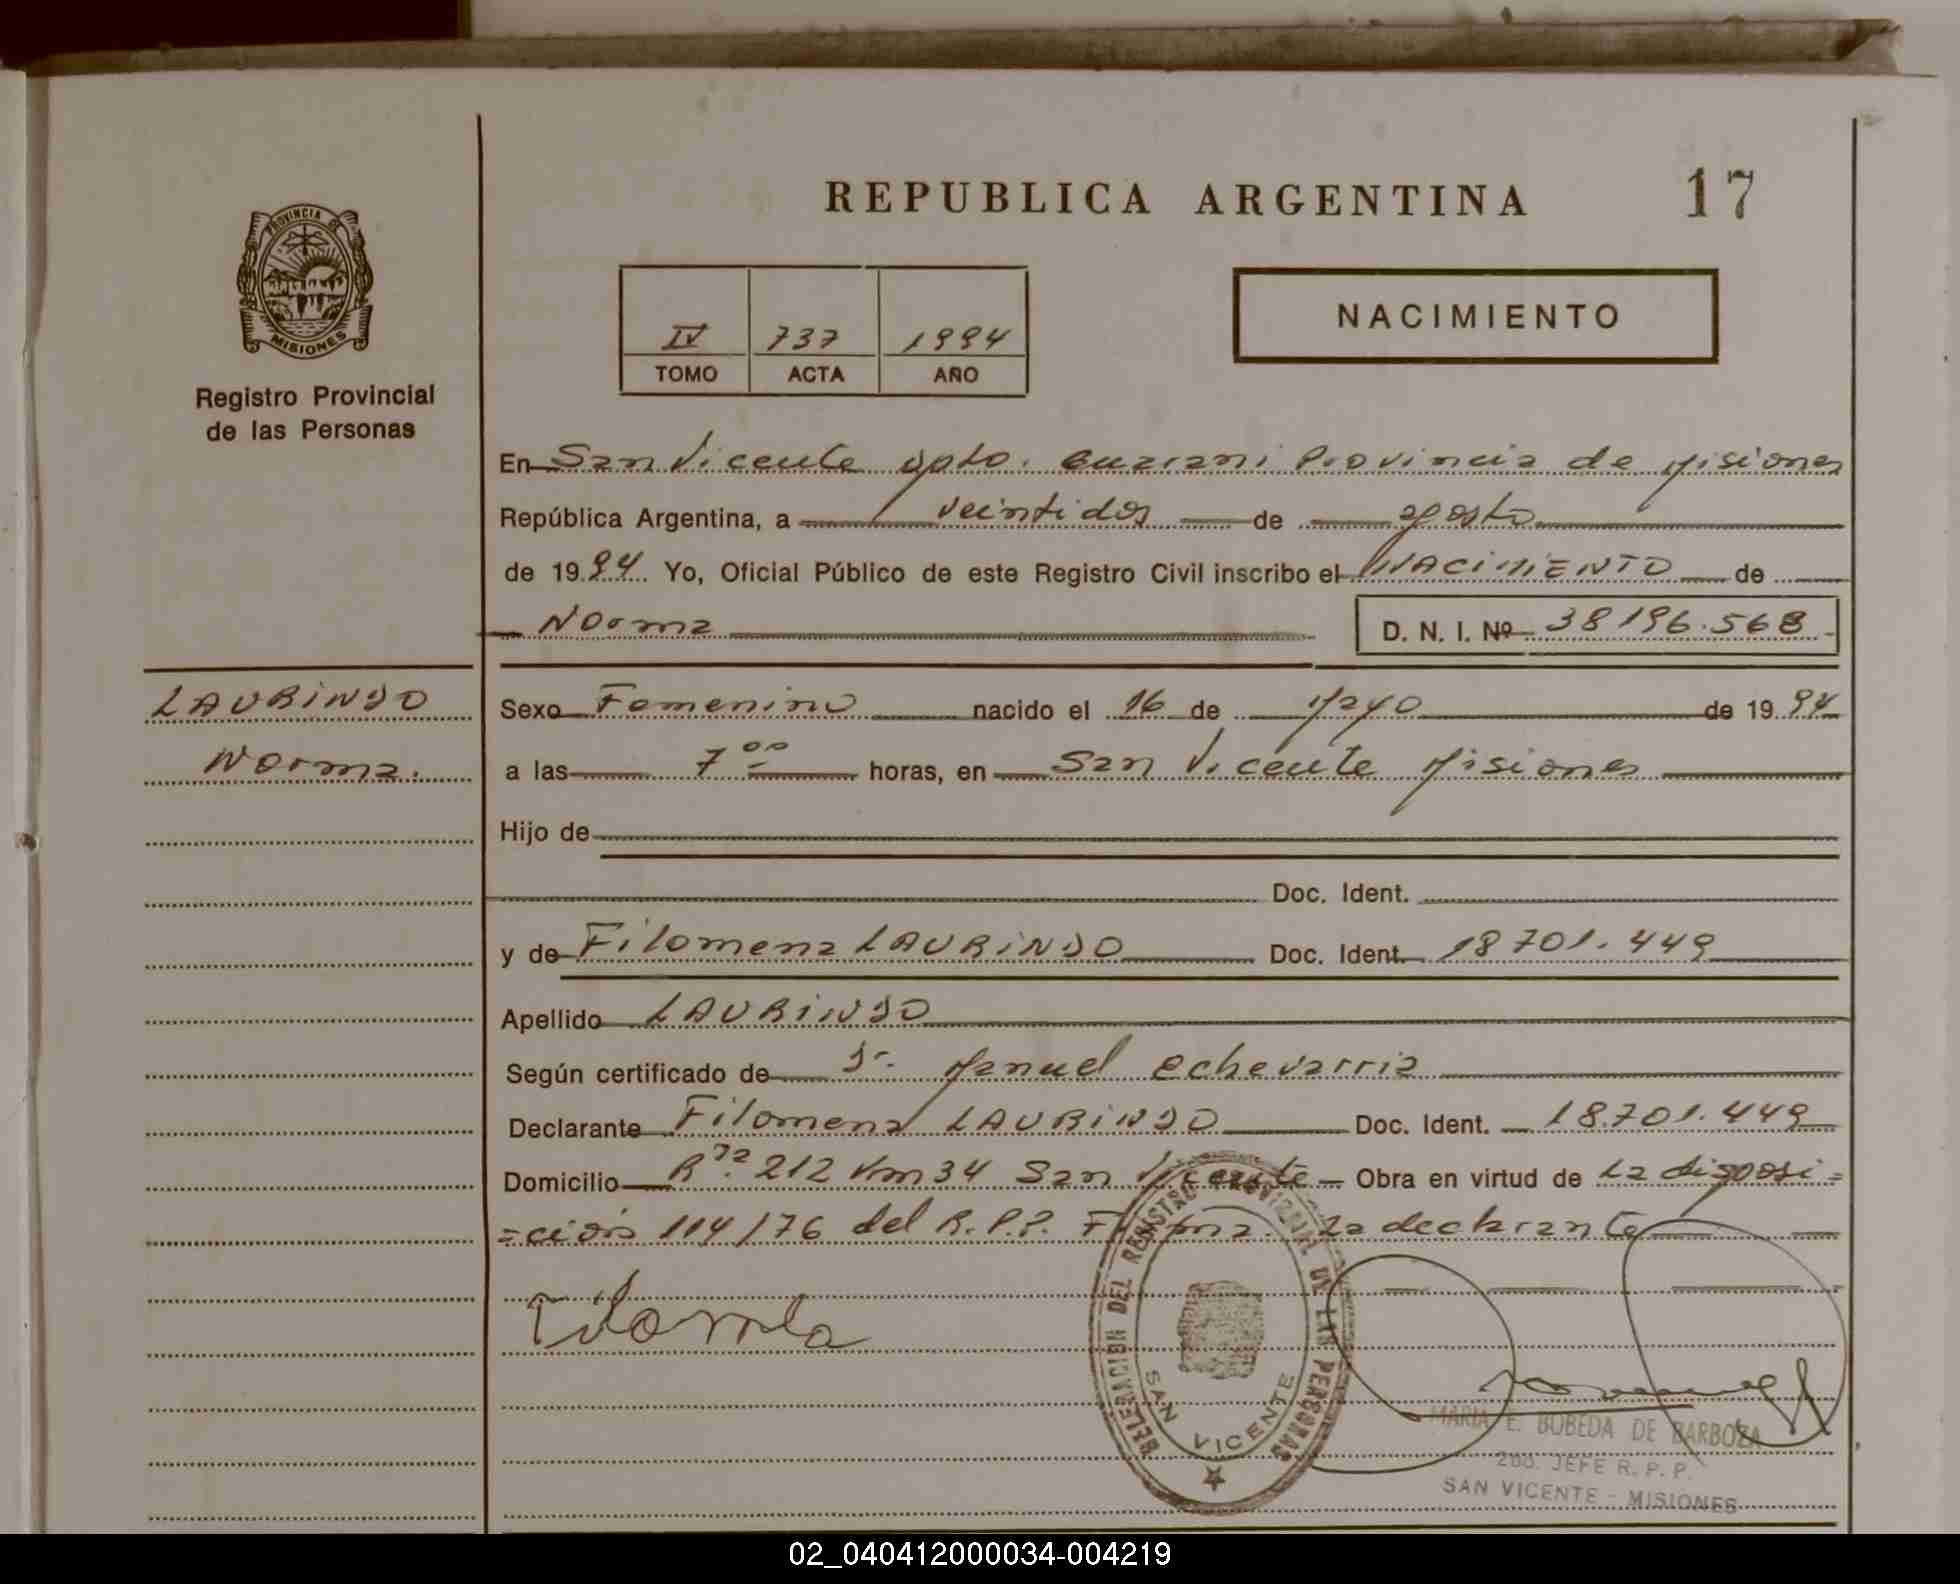 REPUBLICA ARGENTINA 17
PROVINCIA DE
MISIONES
Registro Provincial
de las Personas
NACIMIENTO
IV 737 1994
TOMO ACTA AÑO
En San Vicente Dpto. Guarani Provincia de Misiones
República Argentina, a veintidos de agosto
de 1994 Yo, Oficial Público de este Registro Civil inscribo el NACIMIENTO de
Norma D. N. I. Nº 38196.568
LAURINDO
Norma.
Sexo Femenino nacido el 16 de Mayo de 1994
a las 7 oo horas, en San Vicente Misiones
Hijo de
Doc. Ident.
y de Filomena LAURINDO Doc. Ident. 18701.449
Apellido LAURINDO
Según certificado de Dr. Manuel Echevarria
Declarante Filomena LAURINDO Doc. Ident. 18.701.449
Domicilio Rta. 212 Km 34 San Vicente Obra en virtud de La disposi=
=ción 114/76 del R.P.P. Firma. La declarante
DELEGACION DEL REGISTRO PROVINCIAL DE LAS PERSONAS
SAN VICENTE
MARIA E. BOBEDA DE BARBOZA
2do. JEFE R. P. P.
SAN VICENTE - MISIONES
02_040412000034-004219